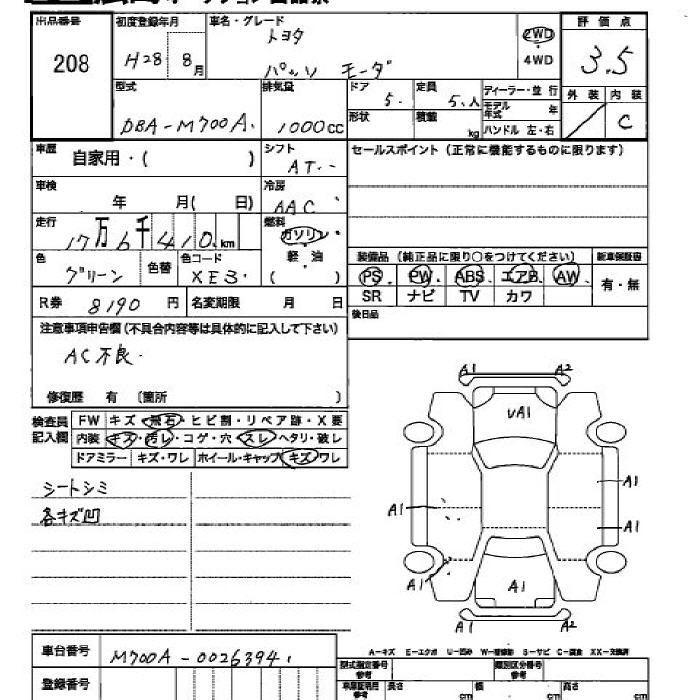 出品番号 初度登録年月 車名・グレード 評価点
208 H28 8月 トヨタ 2WD 3.5
パッソ モーダ 4WD
型式 排気量 ドア 定員 ディーラー・並行 外装 内装
DBA-M700A. 1000cc 5. 5.人 モデル年式 年
形状 積載 kg ハンドル 左・右 C
車歴 自家用・( ) シフト AT.- セールスポイント (正常に機能するものに限ります)
車検 年 月( 日) 冷房 AAC
走行 17万6千410.km 燃料 ガソリン
軽油
( )
色 グリーン 色替 色コード XE3. 装備品 (純正品に限り○をつけてください) 新車保証書
PS. PW. ABS. エアB. AW. 有・無
R券 8190 円 名変期限 月 日 SR ナビ TV カワ
注意事項申告欄 (不具合内容等は具体的に記入して下さい) 後日品
AC不良.
修復歴 有 〔箇所 〕
検査員記入欄 FW キズ・飛石・ヒビ割・リペア跡・X要
内装 キズ・汚レ・コゲ・穴・スレ・ヘタリ・破レ
ドアミラー キズ・ワレ ホイール・キャップ キズ・ワレ
シートシミ
各キズ凹
A1 A2
UA1
A1
A1 A1
A1 A1
A1 A2
車台番号 M700A-0026394
登録番号
A-キズ E-エクボ U-凹み W-補修跡 S-サビ C-腐食 XX-交換済
型式指定番号 類別区分番号
参考 参考
車庫証明用 長さ 幅 高さ
参考 cm cm cm